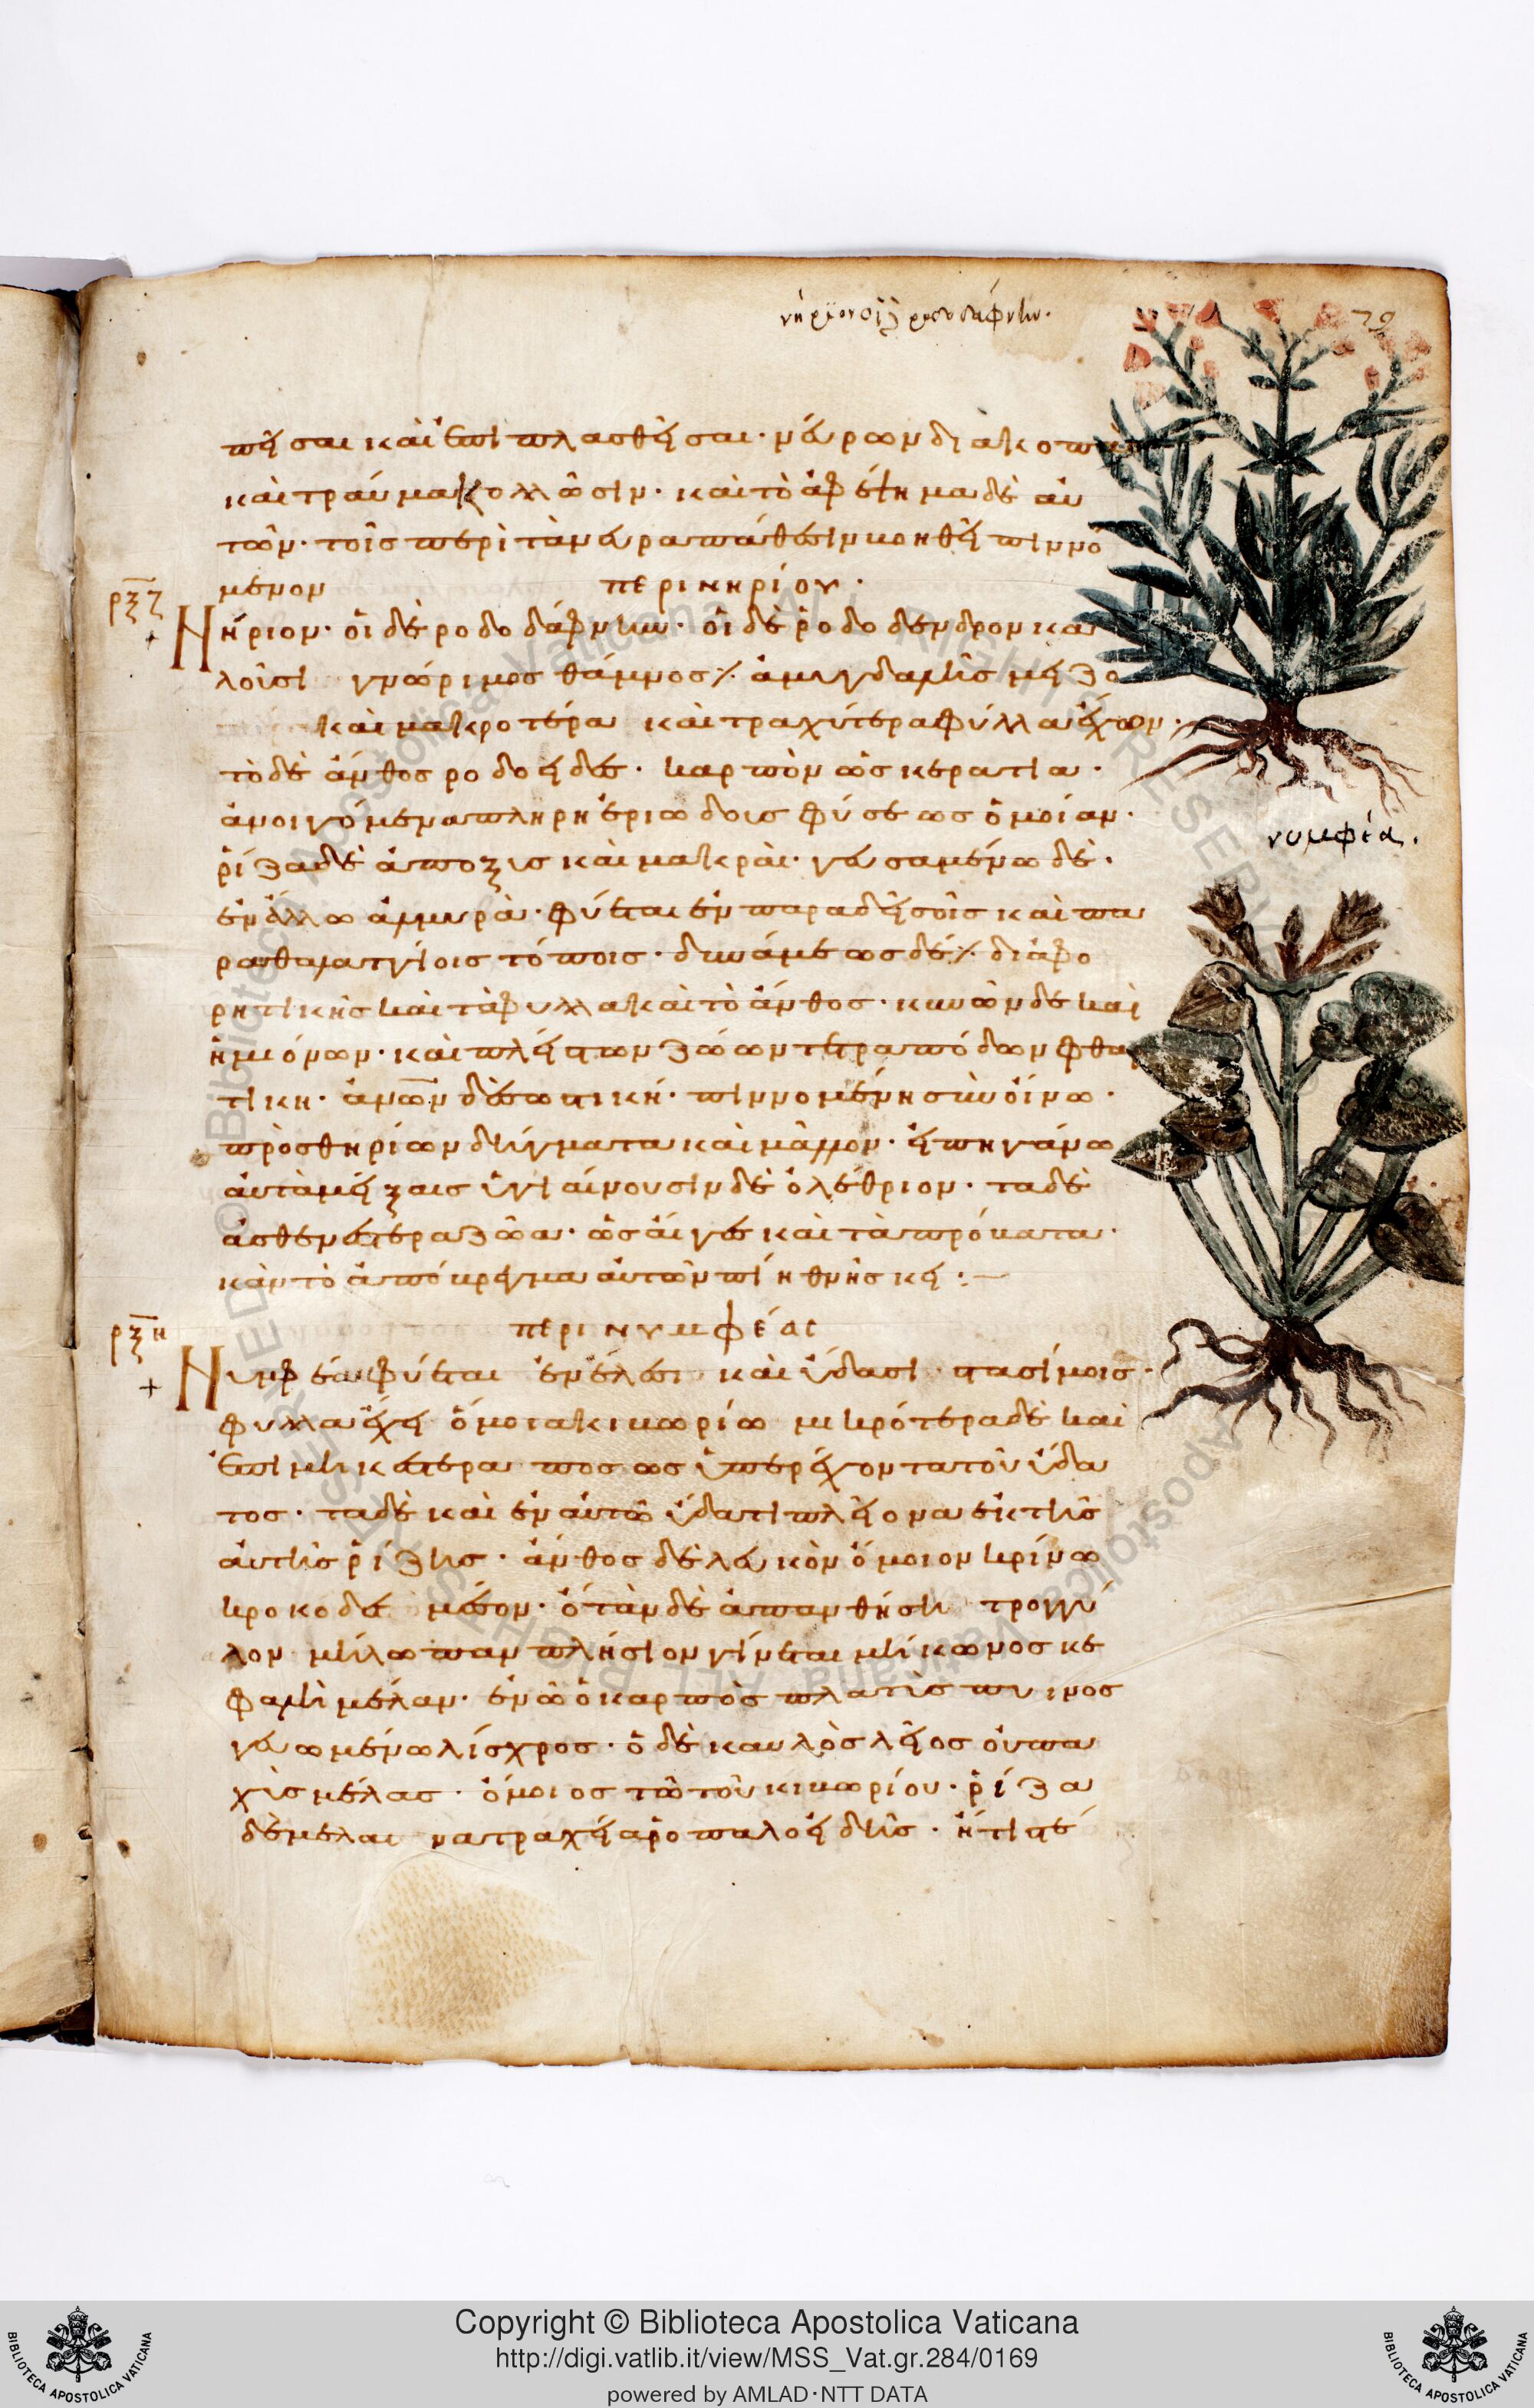 νήριον οἱ δὲ ροδοδάφνην.
79
πεῖσαι καὶ ἐπιπλασθεῖσαι· νεύρων διακοπὰς
καὶ τραύμα κολλῶσιν· καὶ τὸ ἀφέψημα δὲ αὐ
τῶν· τοῖς περὶ τὰ νεῦρα πάθεσιν βοηθεῖ πινό
μενον περὶ νηρίου·
ρξζ
Νήριον· οἱ δὲ ροδοδάφνην· οἱ δὲ ροδοδενδρον κα
λοῦσι γνώριμος θάμνος ἀμυγδαλῆς μείζο
και μακροτέρα καὶ τραχύτερα φύλλα ἔχων·
τὸ δὲ ἄνθος ροδοειδές· καρπὸν ὡς κερατια·
ἀνοιγόμενα πλήρη ἐριώδους φύσεως ὁμοίαν·
ῥίζα δὲ ἀποξυς καὶ μακρὰ· γευσαμένω δὲ·
ἁλμυρὰ· φύεται ἐν παραδείσοις καὶ πα
ραθαλαττίοις τόποις· δυνάμεως δέ διαφο
ρητικῆς καὶ τὰ φυλλα καὶ τὸ ἄνθος· κυνῶν δὲ καὶ
ἡμιόνων· καὶ πλείστων ζώων τετραπόδων φθαρ
τικη· ἀνων δὲ σωστική· πινομένη σὺν οἴνω·
πρὸς θηρίων δήγματα καὶ μᾶλλον· εἰ πηγάνω
αὐτὰ μείξαις ὑγιαίνουσιν δὲ ὀλέθριον· τα δὲ
ἀσθενέστερα ζῶα· ὡς αἶγες καὶ τὰ πρόβατα·
κἀν τὸ ἀπόβρεγμα αὐτῶν πίη θνήσκει:—
περι νυμφέας
ρξη
Νυμφέα φύεται ἐν ἕλεσι καὶ ὕδασι στασίμοις·
φυλλα ἔχει ὅμοια κιβωρίω μικρότερα δὲ καὶ
ἐπιμηκέστερα ποσως ὑπερέχοντα τοῦ ὕδα
τος· τα δὲ καὶ ἐν αὐτῶ ὕδατι πλείονα ἐκ τῆς
αὐτῆς ῥίζης· ἄνθος δὲ λευκὸν ὅμοιον κρίνω
κροκοδε μέσον· ὁτὰν δὲ ἀπανθήση τρογγύ
λον μήλω παμπλήσιον γίνεται μήκωνος κε
φαλῆ μέλαν· ἐν ὧ ὁ καρπὸς πλατὺς πυκνος
γευωμένω λίσχρος· ὁ δὲ καυλὸς λεῖος οὐ πα
χὺς μέλας· ὅμοιος τῶ τοῦ κιβωρίου· ῥίζα
δὲ μελαινα τραχεία ῥοπαλοειδῆς· ἥτις τέ
νυμφέα.
Copyright © Biblioteca Apostolica Vaticana
http://digi.vatlib.it/view/MSS_Vat.gr.284/0169
powered by AMLAD·NTT DATA
BIBLIOTECA APOSTOLICA VATICANA
BIBLIOTECA APOSTOLICA VATICANA